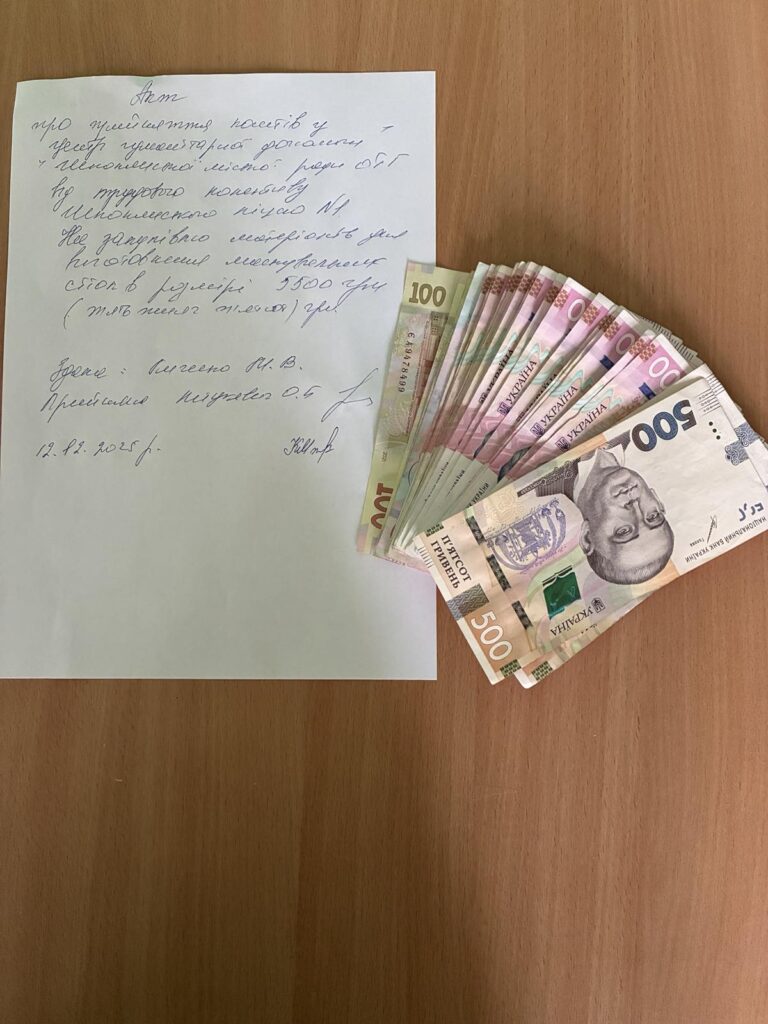 Акт
про прийняття коштів у
центр гуманітарної допомоги
Шполянської міської ради ОТГ
від трудового колективу
Шполянського ліцею №1.
На закупівлю матеріалів для
виготовлення маскувальних
сіток в розмірі 5500 грн
(п'ять тисяч п'ятсот) грн.
Здала: В.
Прийняла О.Б
12.12.2025 р.
100
649478499
100
УКРАЇНА
УКРАЇНА
УКРАЇНА
500
НАЦІОНАЛЬНИЙ БАНК УКРАЇНИ
П'ЯТСОТ
ГРИВЕНЬ
УКРАЇНА
500